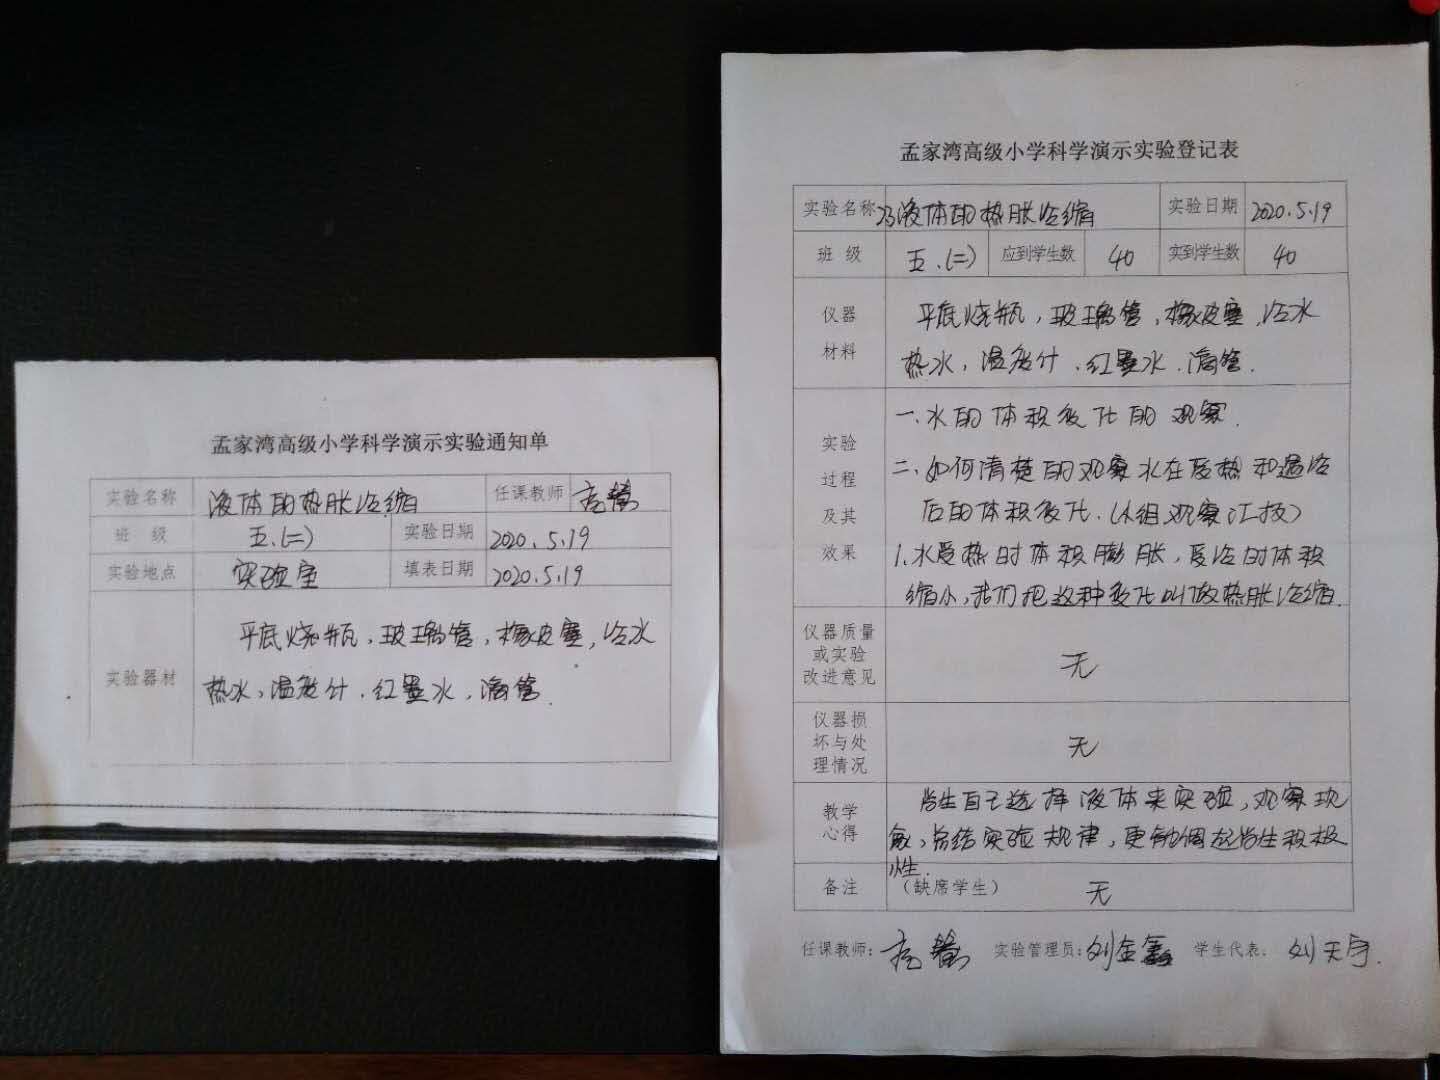 孟家湾高级小学科学演示实验通知单
实验名称 液体的热胀冷缩 任课教师 高慧
班 级 五.(二) 实验日期 2020.5.19
实验地点 实验室 填表日期 2020.5.19
实验器材
平底烧瓶,玻璃管,橡皮塞,冷水
热水,温度计.红墨水,滴管.
孟家湾高级小学科学演示实验登记表
实验名称 液体的热胀冷缩 实验日期 2020.5.19
班 级 五.(二) 应到学生数 40 实到学生数 40
仪器
材料
平底烧瓶,玻璃管,橡皮塞,冷水
热水,温度计.红墨水.滴管.
实验
过程
及其
效果
一.水的体积变化的观察.
二.如何清楚的观察水在受热和遇冷
后的体积变化.(小组观察汇报)
1.水受热时体积膨胀,受冷时体积
缩小,我们把这种变化叫做热胀冷缩.
仪器质量
或实验
改进意见
无
仪器损
坏与处
理情况
无
教学
心得
学生自己选择液体来实验,观察现
象,总结实验规律,更能调起学生积极
性.
备注 (缺席学生) 无
任课教师: 高慧 实验管理员: 刘金鑫 学生代表: 刘天宇.